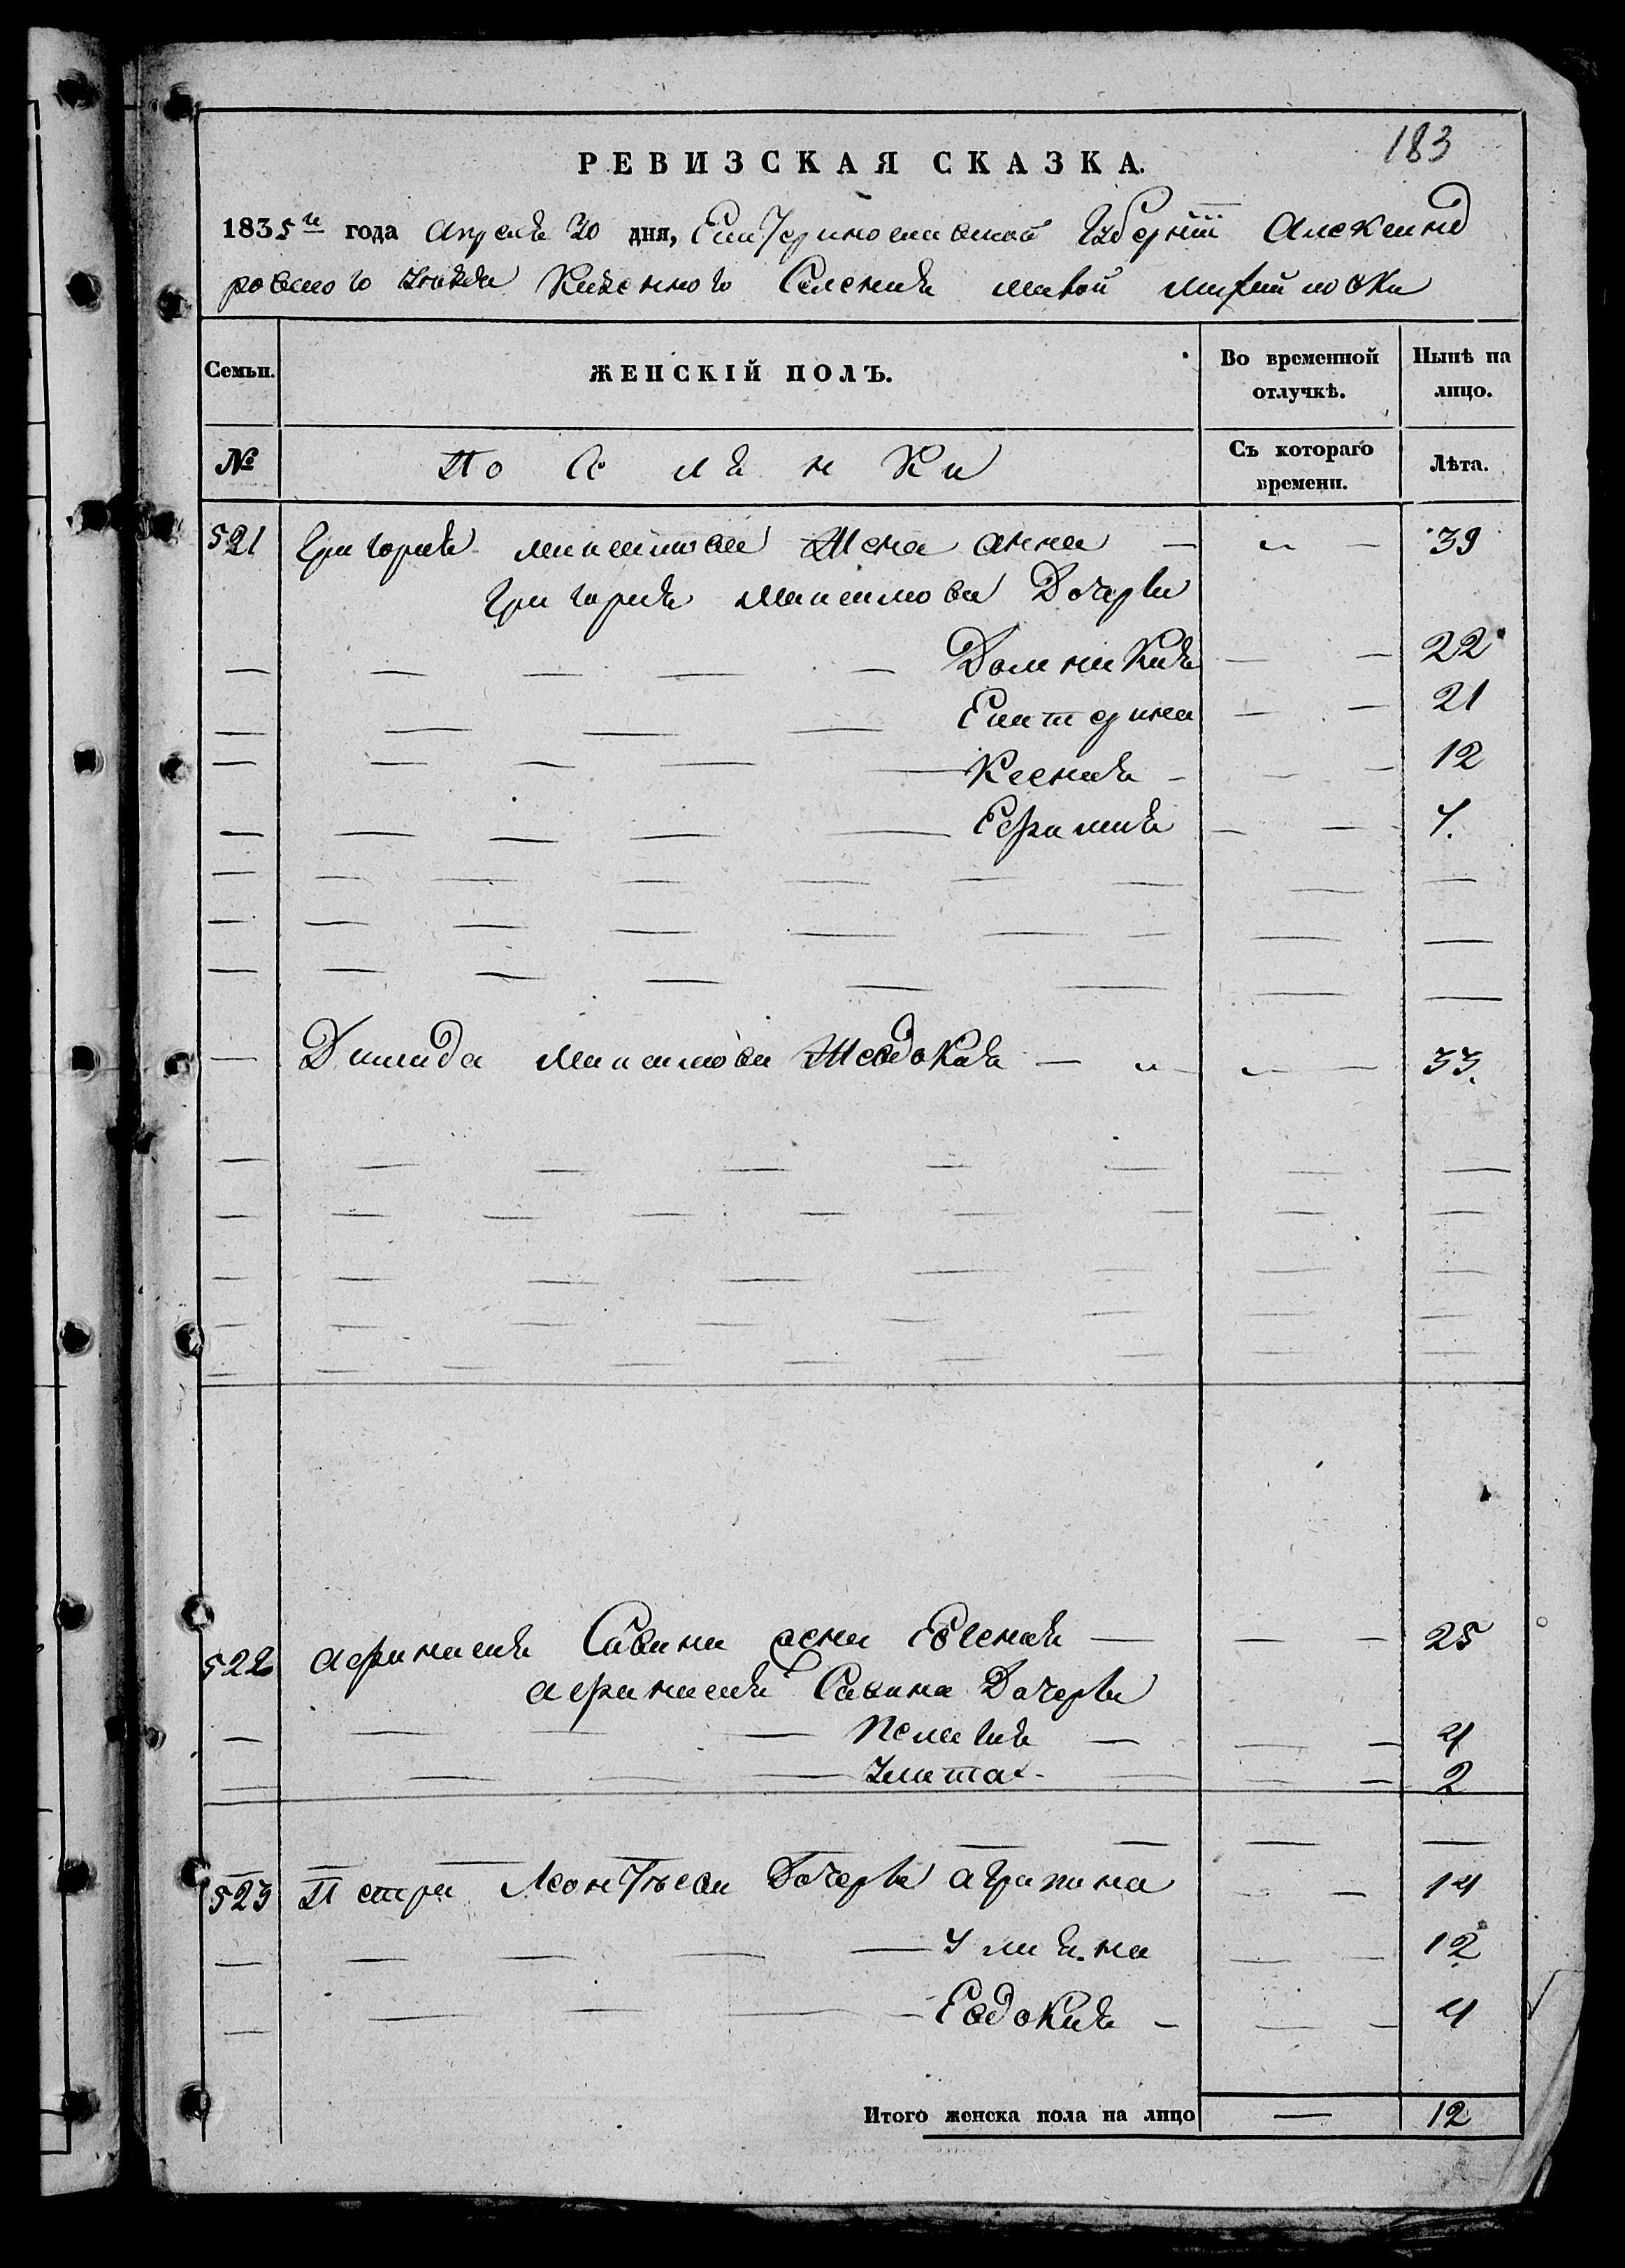 183
РЕВИЗСКАЯ СКАЗКА.
1835го года Апреля 20 дня, Екатеринославской Губернии Александ
ровского уезда Казенного Селения малой михайловки
Семьи. ЖЕНСКІЙ ПОЛЪ. Во временной отлучкѣ. Нынѣ на лицо.
№ По Се ля н Ки Съ котораго времени. Лѣта.
521 Григория максимова Жена анна — 〃 — 39
Григория Максимова Дочери
— — — — — Домникия — — 22
— — — — Екатерина — — 21
— — — — — Ксения — — — 12
— — — — — Ефимия — — 7.
— Демида Максимова Ж Евдокия — 〃 — 33.
522 афанасия Савина жена Евгения — — — 25
афанасия Савина Дочери
— — — — Пелагия — — — 4
— — — — Улита — — — 2
523 Петра Леонтьева Дочери агрипина — — 14
— — — — — Ульяна — — 12
— — — — — Евдокия — — — 4
Итого женска пола на лицо — 12